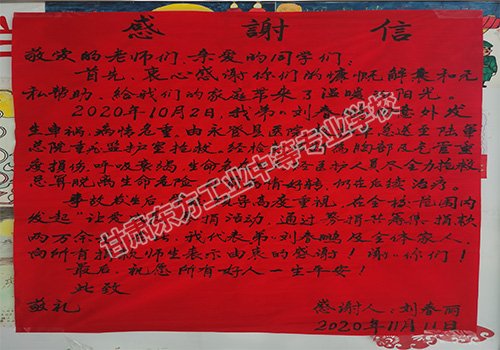 感謝信
敬爱的老师们、亲爱的同学们：
首先，衷心感谢你们的慷慨解囊和无
私帮助，给我们的家庭带来了温暖 阳光。
2020年10月2日，我弟 刘春 意外发
生车祸，病情危重，由永登县医院 急送至陆军
总院重症监护室抢救，经检 为胸部及 重
度损伤，呼吸衰竭，生命 医护人员尽全力抢救
总算脱离生命危险， 病情好转，仍在后续治疗。
事故发生后， 领导高度重视，在全校范围内
发起"让爱 捐活动，通过募捐共筹集 捐款
两万余 ，我代表弟 刘春鹏及全体家人，
向所有捐款师生表示由衷的感谢！谢 你们！
最后，祝愿所有好人一生平安！
此致
敬礼
感谢人：刘春丽
2020年11月11日
甘肃东方工业中等专业学校